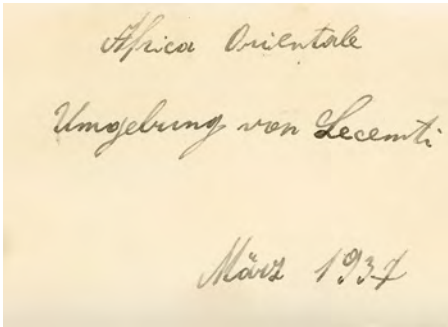 Africa Orientale
Umgebung von Lecemti
März 1937